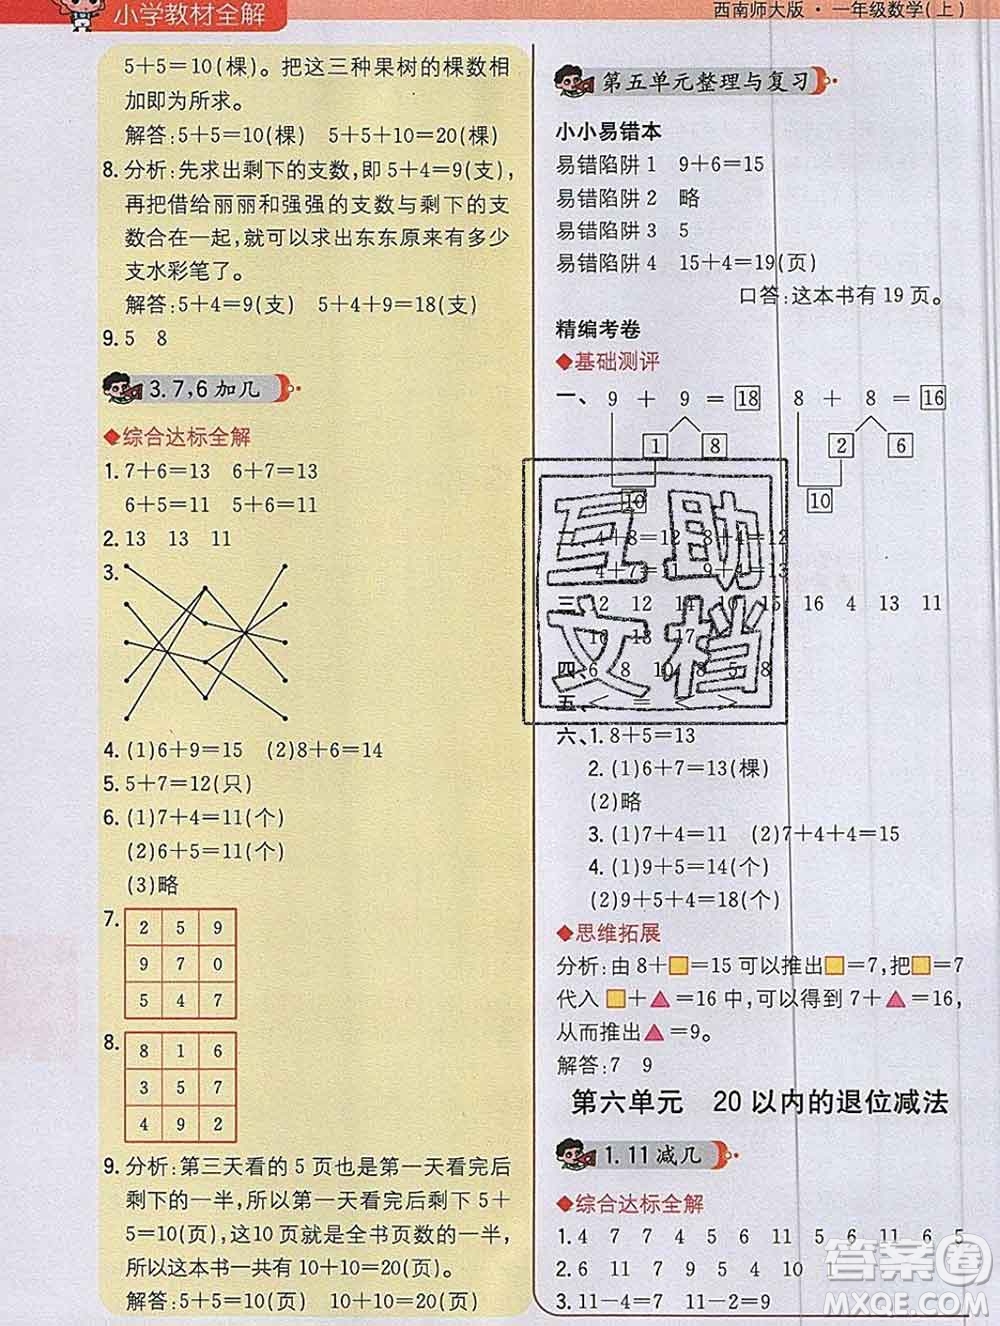 小学教材全解
西南师大版·一年级数学(上)
5+5=10(棵)。把这三种果树的棵数相
加即为所求。
解答:5+5=10(棵) 5+5+10=20(棵)
8. 分析:先求出剩下的支数,即 5+4=9(支),
再把借给丽丽和强强的支数与剩下的支
数合在一起,就可以求出东东原来有多少
支水彩笔了。
解答:5+4=9(支) 5+4+9=18(支)
9. 5 8
3. 7,6 加几
◆综合达标全解
1. 7+6=13 6+7=13
6+5=11 5+6=11
2. 13 13 11
3.
4. (1)6+9=15 (2)8+6=14
5. 5+7=12(只)
6. (1)7+4=11(个)
(2)6+5=11(个)
(3)略
7.
2 5 9
9 7 0
5 4 7
8.
8 1 6
3 5 7
4 9 2
9. 分析:第三天看的 5 页也是第一天看完后
剩下的一半,所以第一天看完后剩下 5+
5=10(页),这10页就是全书页数的一半,
所以这本书一共有 10+10=20(页)。
解答:5+5=10(页) 10+10=20(页)
第五单元整理与复习
小小易错本
易错陷阱 1 9+6=15
易错陷阱 2 略
易错陷阱 3 5
易错陷阱 4 15+4=19(页)
口答:这本书有 19 页。
精编考卷
◆基础测评
一、 9 + 9 = 18 8 + 8 = 16
1 8 2 6
10 10
4+8=12 8+4=12
4+7=11 9+4=13
三、12 12 14 10 15 16 4 13 11
16 18 17
四、6 8 10 8 5 8
五、< = < >
六、1. 8+5=13
2. (1)6+7=13(棵)
(2)略
3. (1)7+4=11 (2)7+4+4=15
4. (1)9+5=14(个)
(2)9+5+4=18(个)
◆思维拓展
分析:由 8+■=15 可以推出■=7,把■=7
代入 ■+▲=16 中,可以得到 7+▲=16,
从而推出▲=9。
解答:7 9
第六单元 20 以内的退位减法
1. 11 减几
◆综合达标全解
1. 4 7 7 4 5 6 11 5 11 6 5
2. 6 11 7 9 5 4 10
3. 11-4=7 11-2=9
互助
文档
答案圈
MXQE.COM